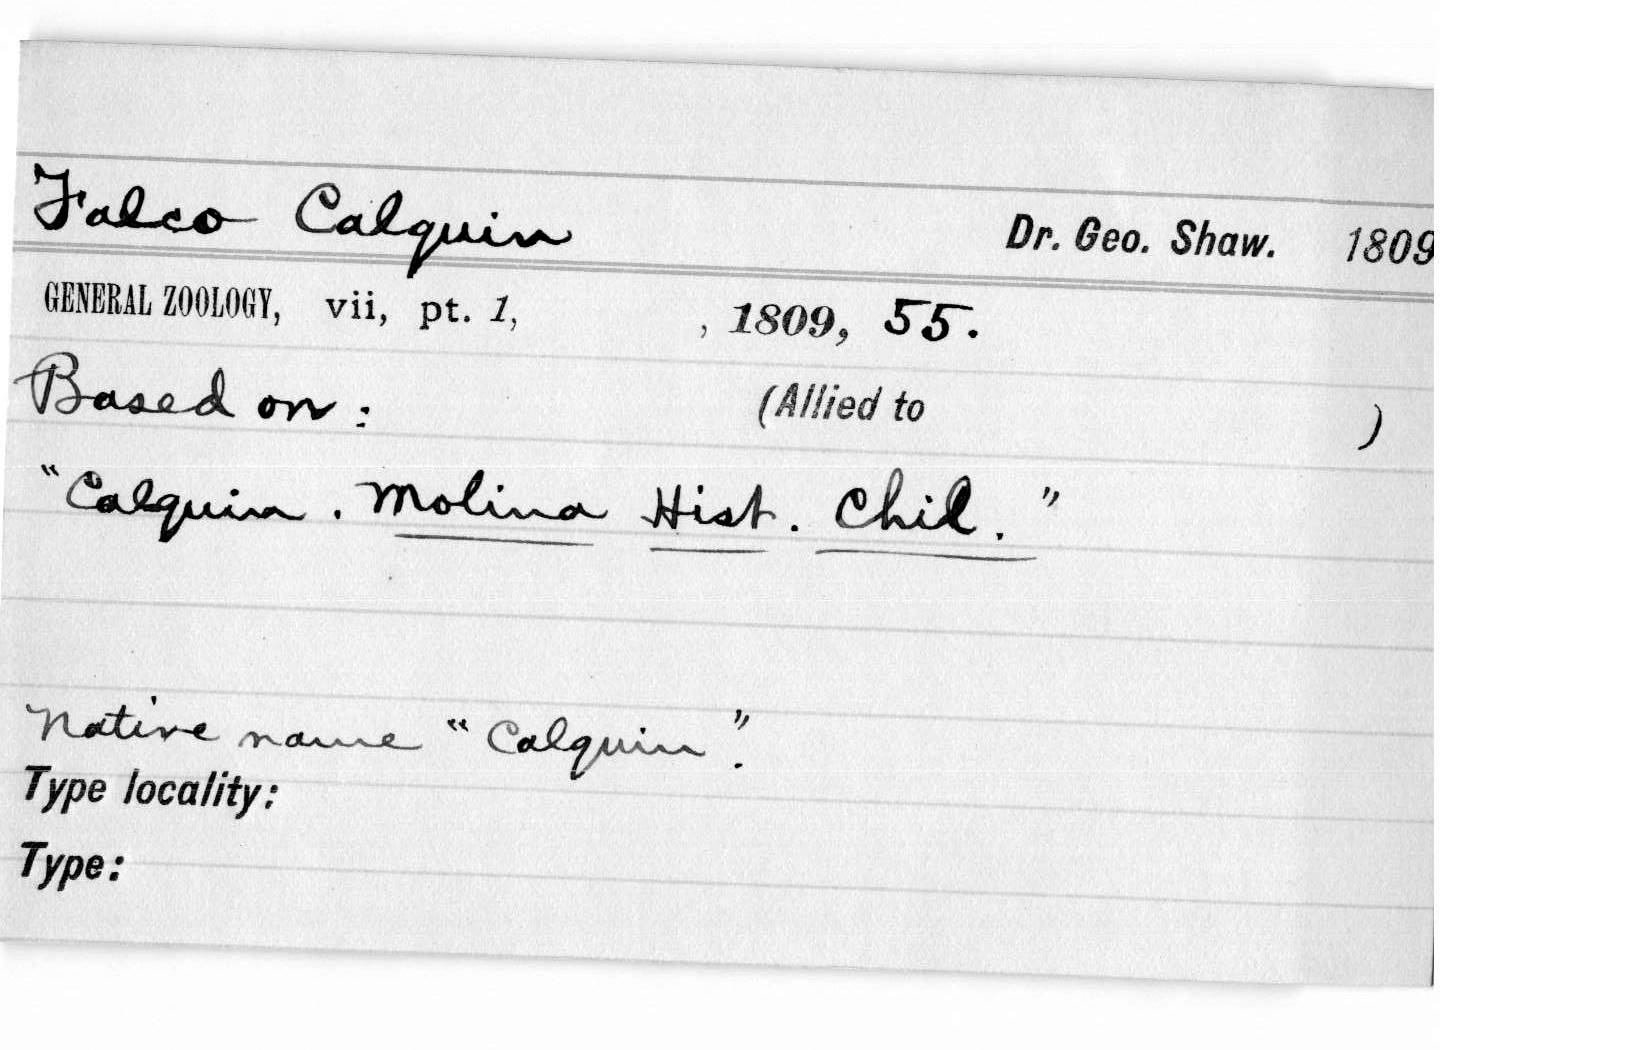 Falco Calquin Dr. Geo. Shaw. 1809
GENERAL ZOOLOGY, vii, pt. 1, , 1809, 55.
Based on : (Allied to )
"Calquin . Molina Hist. Chil. "
Native name "Calquin".
Type locality:
Type: